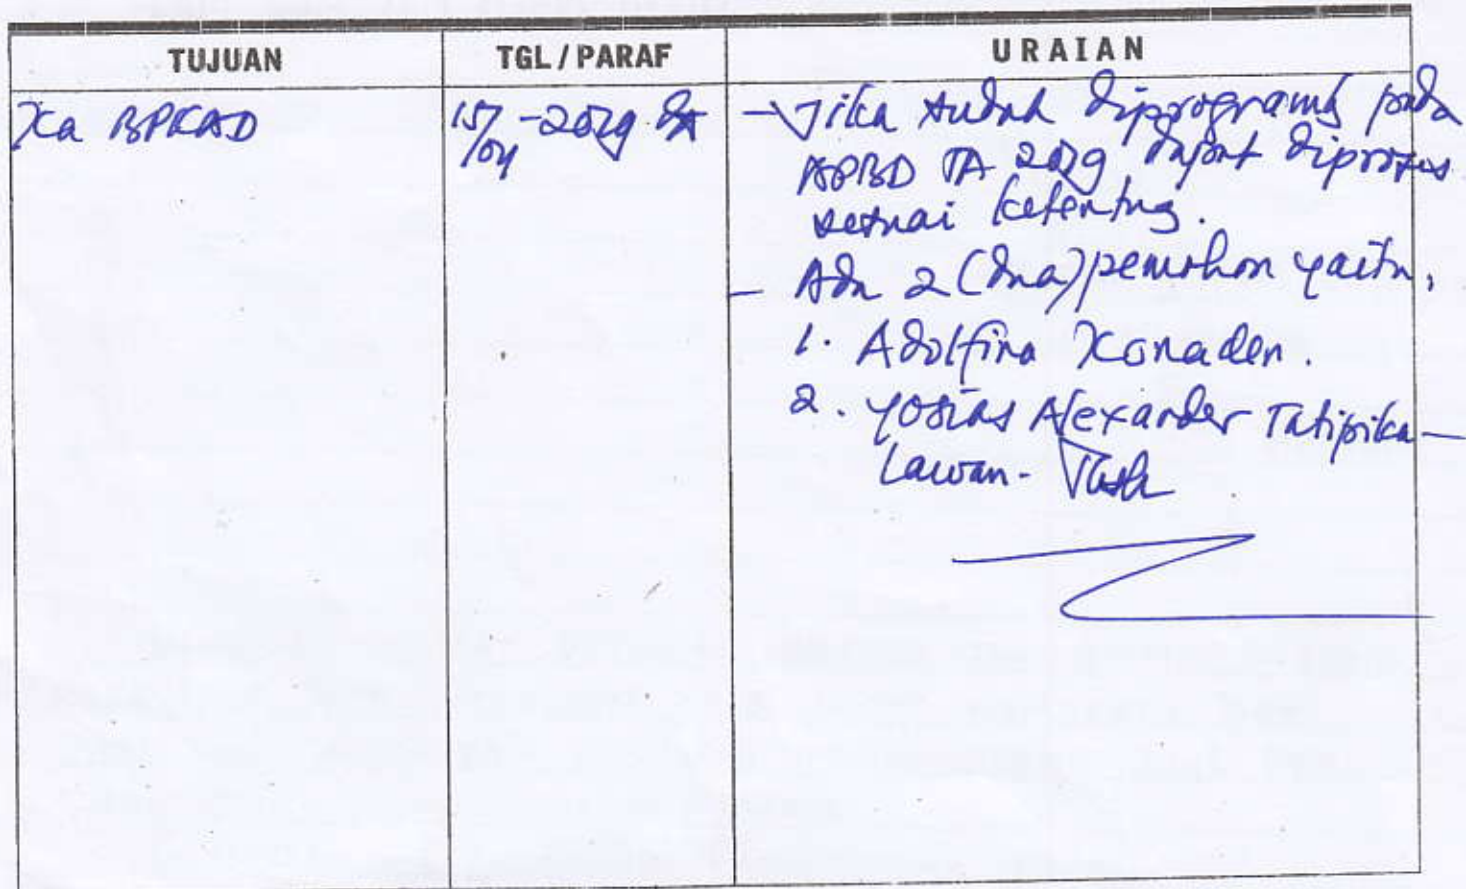 TUJUAN TGL / PARAF URAIAN
Ka BPKAD 15/04 - 2019 - Jika sudah diprogramkan pada
APBD TA 2019 dapat diproses
sesuai ketentuan.
- Ada 2 (dua) pemohon yaitu,
1. Adolfina Konaden.
2. Yosias Alexander Tatipika-
Lawan.